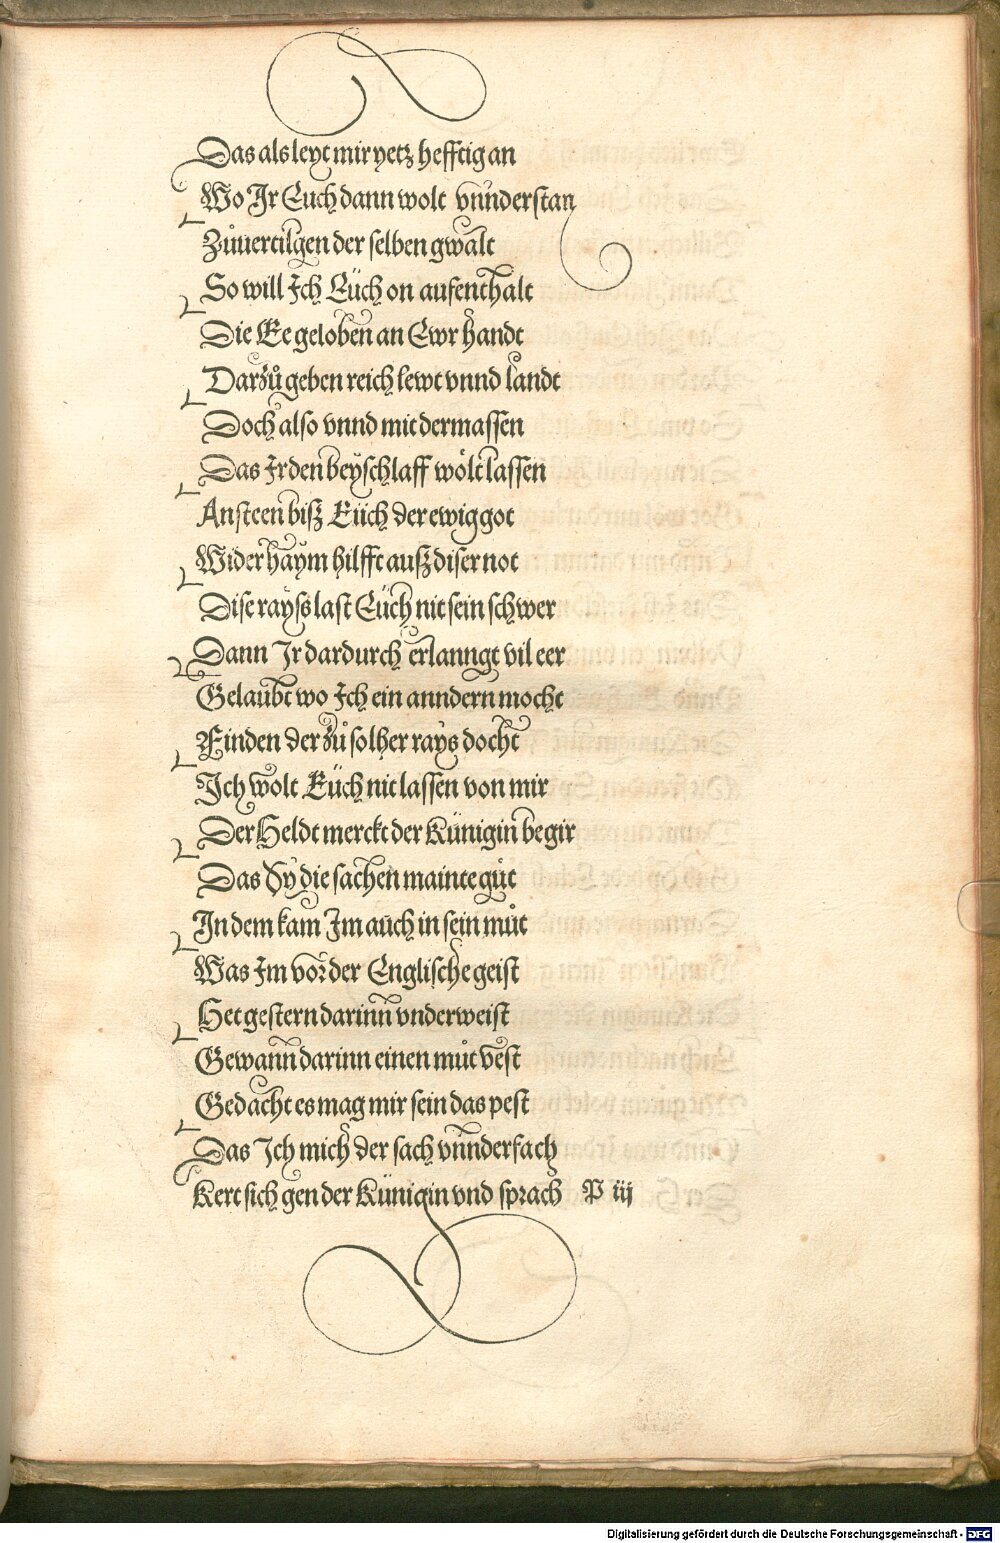 Das als leyt mir yetz hefftig an
Wo Ir Euch dann wolt vnnderstan
Zůuertilgen der selben gwalt
So will Ich Eüch on aufenthalt
Die Ee geloben an Ewr handt
Darzů geben reich lewt vnnd landt
Doch also vnnd mit dermassen
Das Ir den beyschlaff wölt lassen
Ansteen biß Eüch der ewig got
Wider haym hilfft auß diser not
Dise rayss last Eüch nit sein schwer
Dann Ir dardurch erlanngt vil eer
Gelaubt wo Ich ein anndern mocht
Finden der zů solher rays docht
Ich wolt Eüch nit lassen von mir
Der Heldt merckt der Künigin begir
Das Sy die sachen mainte gůt
In dem kam Im auch in sein můt
Was Im vor der Englische geist
Het gestern darinn vnderweist
Gewann darinn einen můt vest
Gedacht es mag mir sein das pest
Das Ich mich der sach vnnderfach
Kert sich gen der Künigin vnd sprach P iij
Digitalisierung gefördert durch die Deutsche Forschungsgemeinschaft - DFG